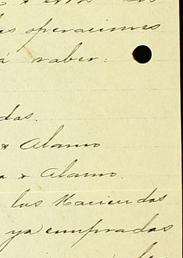 las operaciones
á saber:
das.
x Alamo
a x Alamo.
las Haciendas
ya compradas